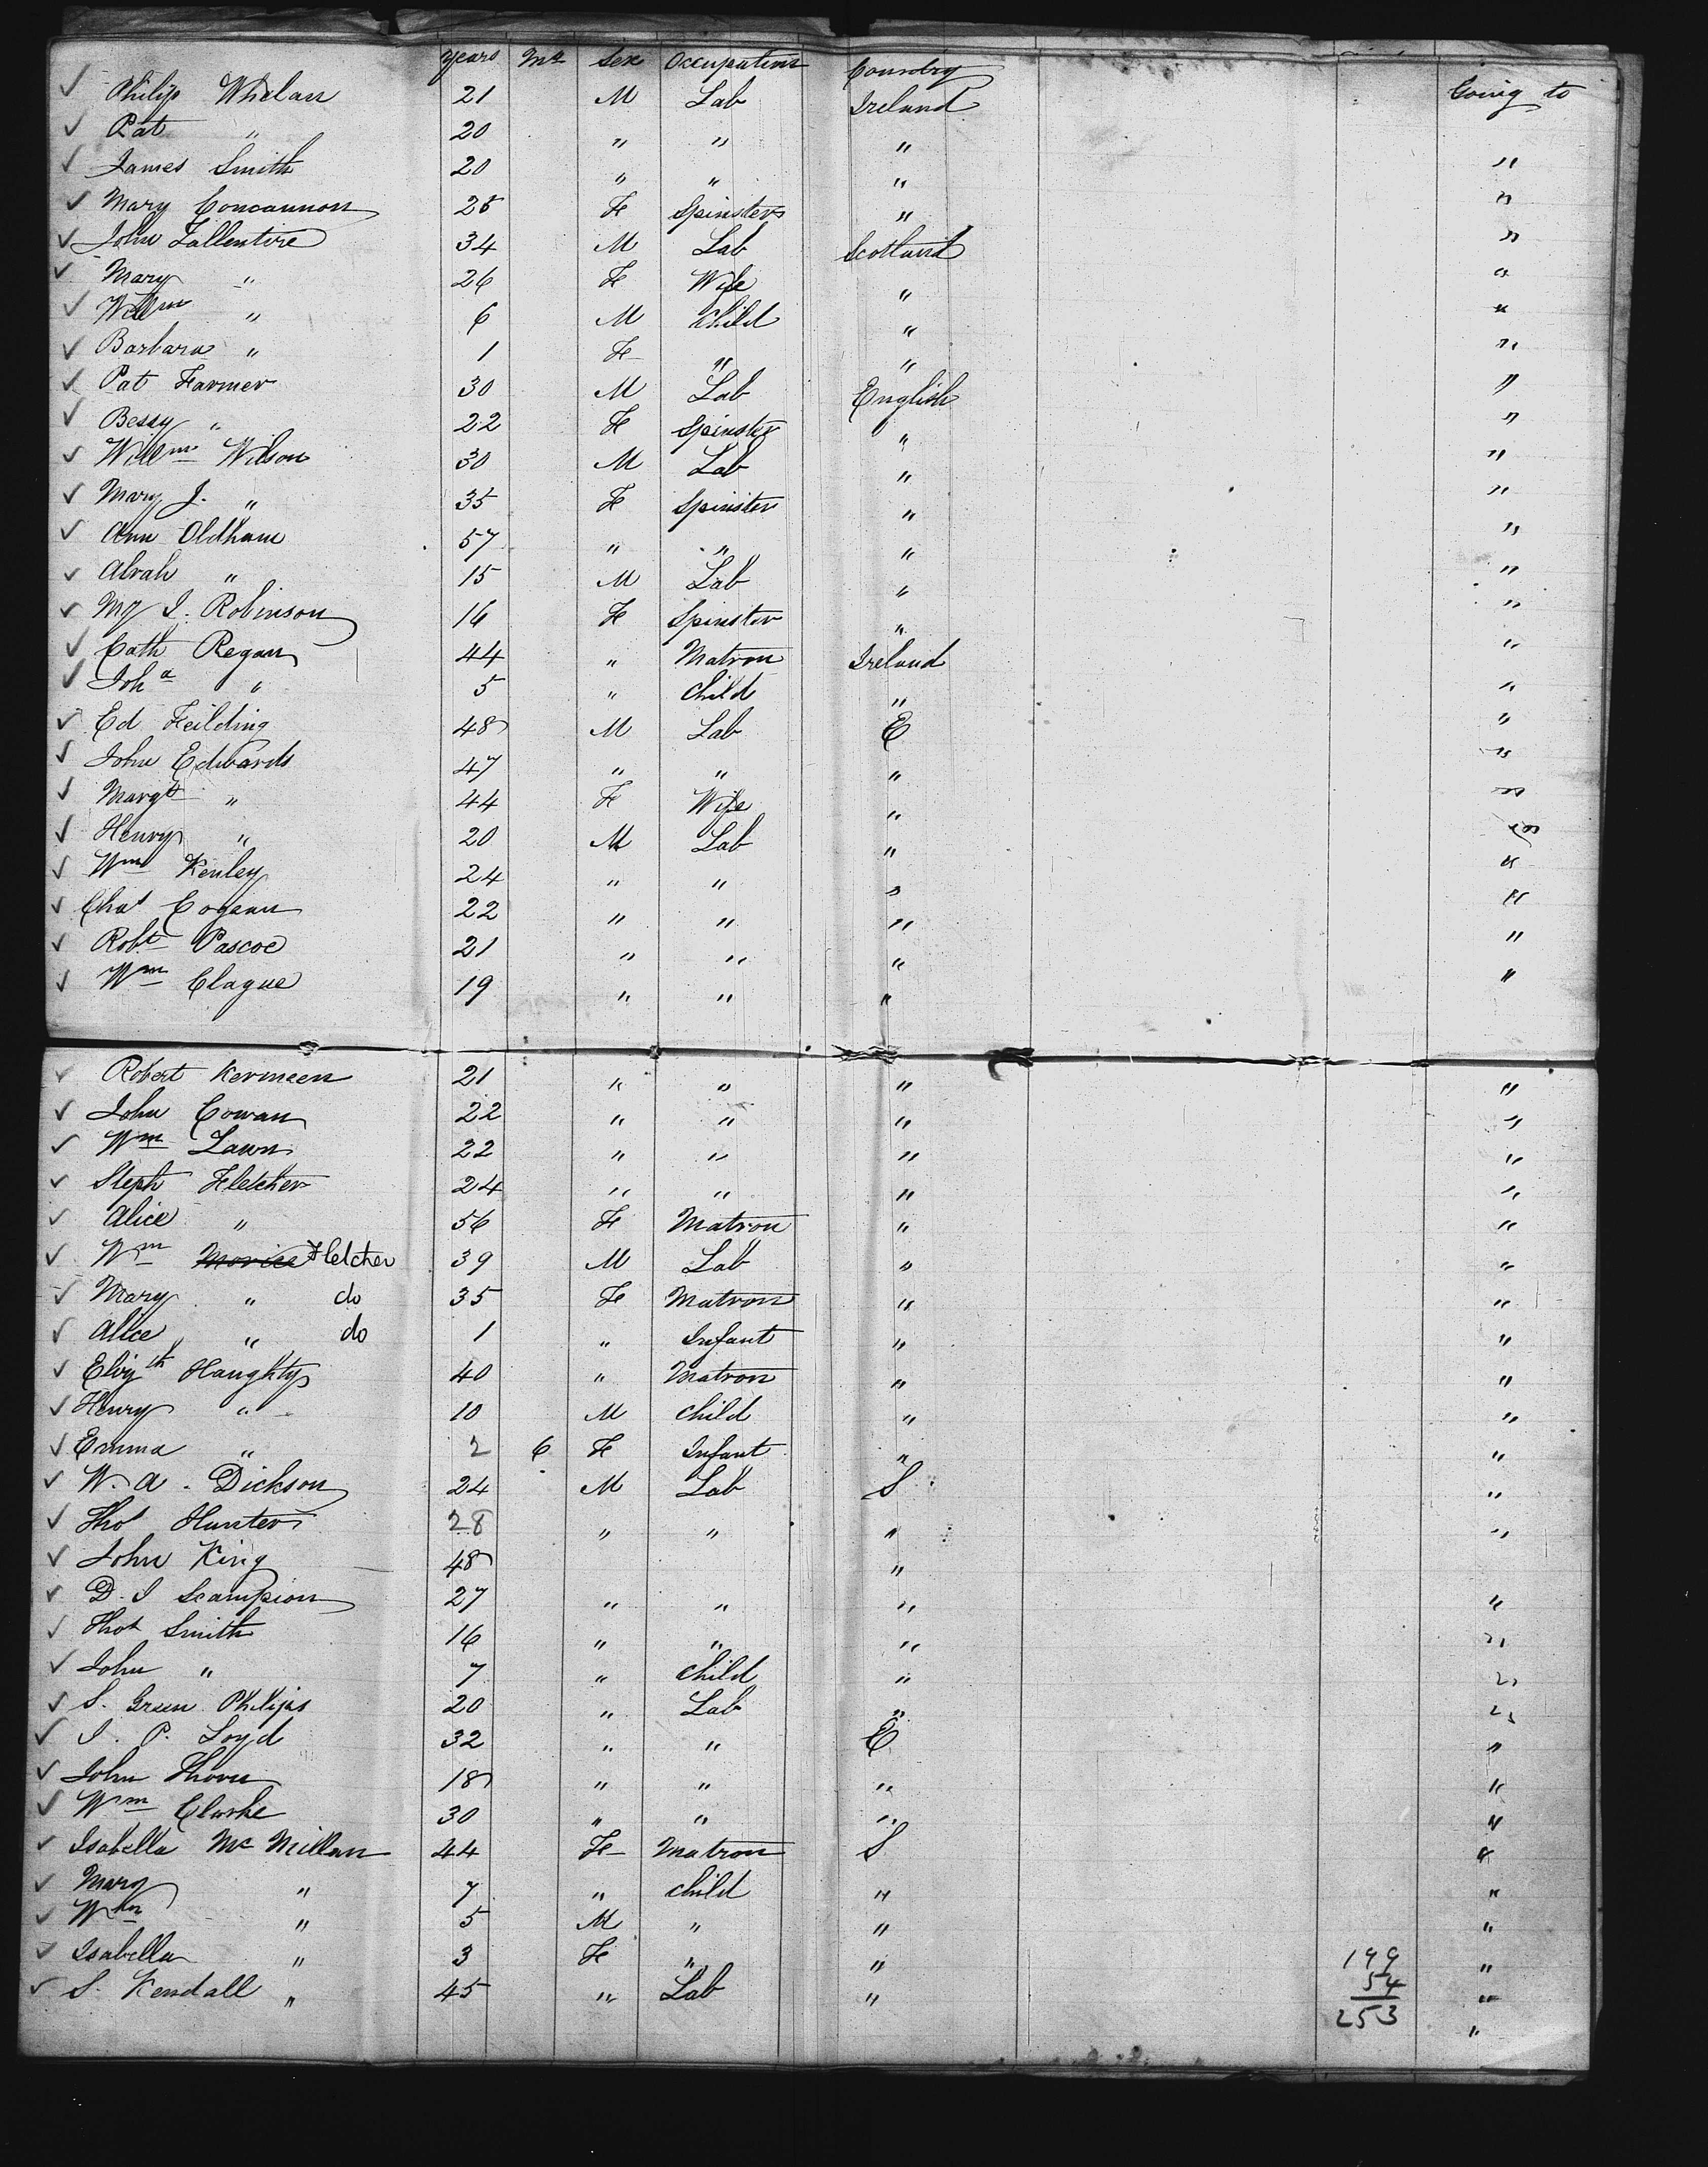 Years Ms Sex Occupation Country Going to
Philip Whelan 21 M Lab Ireland
Pat " 20 " " " "
James Smith 20 " " " "
Mary Concannon 25 Fe Spinster " "
John Lallentire 34 M Lab Scotland "
Mary " 26 Fe Wife " "
Willm " 6 M Child " "
Barbara " 1 Fe " " "
Pat Farmer 30 M Lab English "
Bessy " 22 Fe Spinster " "
Willm Wilson 30 M Lab " "
Mary J. " 35 Fe Spinster " "
Ann Oldham 57 " " " "
Alvah " 15 M Lab " "
My J. Robinson 16 Fe Spinster " "
Cath Regan 44 " Matron Ireland "
Joha " 5 " Child " "
Ed Feilding 48 M Lab E "
John Edwards 47 " " " "
Margt " 44 Fe Wife " "
Henry " 20 M Lab " "
Wm Kenley 24 " " " "
Chas Cogean 22 " " " "
Robt Pascoe 21 " " " "
Wm Clague 19 " " " "
Robert Kermeen 21 " " " "
John Cowan 22 " " " "
Wm Lawn 22 " " " "
Steph Fletcher 24 " " " "
Alice " 56 Fe Matron " "
Wm Morice Fletcher 39 M Lab " "
Mary " do 35 Fe Matron " "
Alice " do 1 " Infant " "
Elizth Haughty 40 " Matron " "
Henry " 10 M Child " "
Emma " 2 6 Fe Infant " "
W. A. Dickson 24 M Lab S "
Thos Hunter 28 " " " "
John King 48 "
D. J Scampion 27 " " " "
Thos Smith 16 " " " "
John " 7 " Child " "
S. Green Philips 20 " Lab " "
J. P. Loyd 32 " " E "
John Thorn 18 " " " "
Wm Clarke 30 " " " "
Isabella Mc Millan 44 Fe Matron S "
Mary " 7 " Child " "
Wm " 5 M " " "
Isabella " 3 Fe " " 199 "
S. Kendall " 45 " Lab " 54 "
253 "